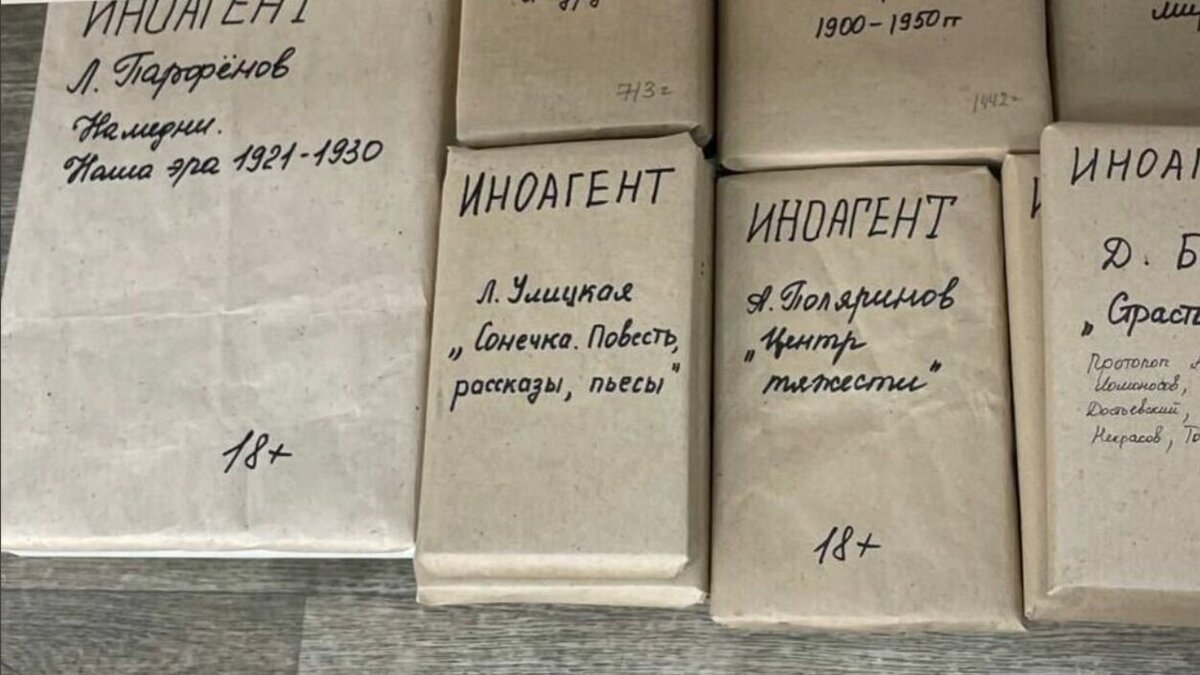 ИНОАГЕНТ
Л. Парфёнов
Намедни.
Наша эра 1921-1930
18+
713г
1900-1950гг
1442г
ИНОАГЕНТ
Л. Улицкая
„Сонечка. Повесть,
рассказы, пьесы"
ИНОАГЕНТ
А. Поляринов
„Центр
тяжести"
18+
ИНОАГ
Д. Б
„Страсть
Протопоп А
Ломоносов,
Достоевский,
Некрасов, То